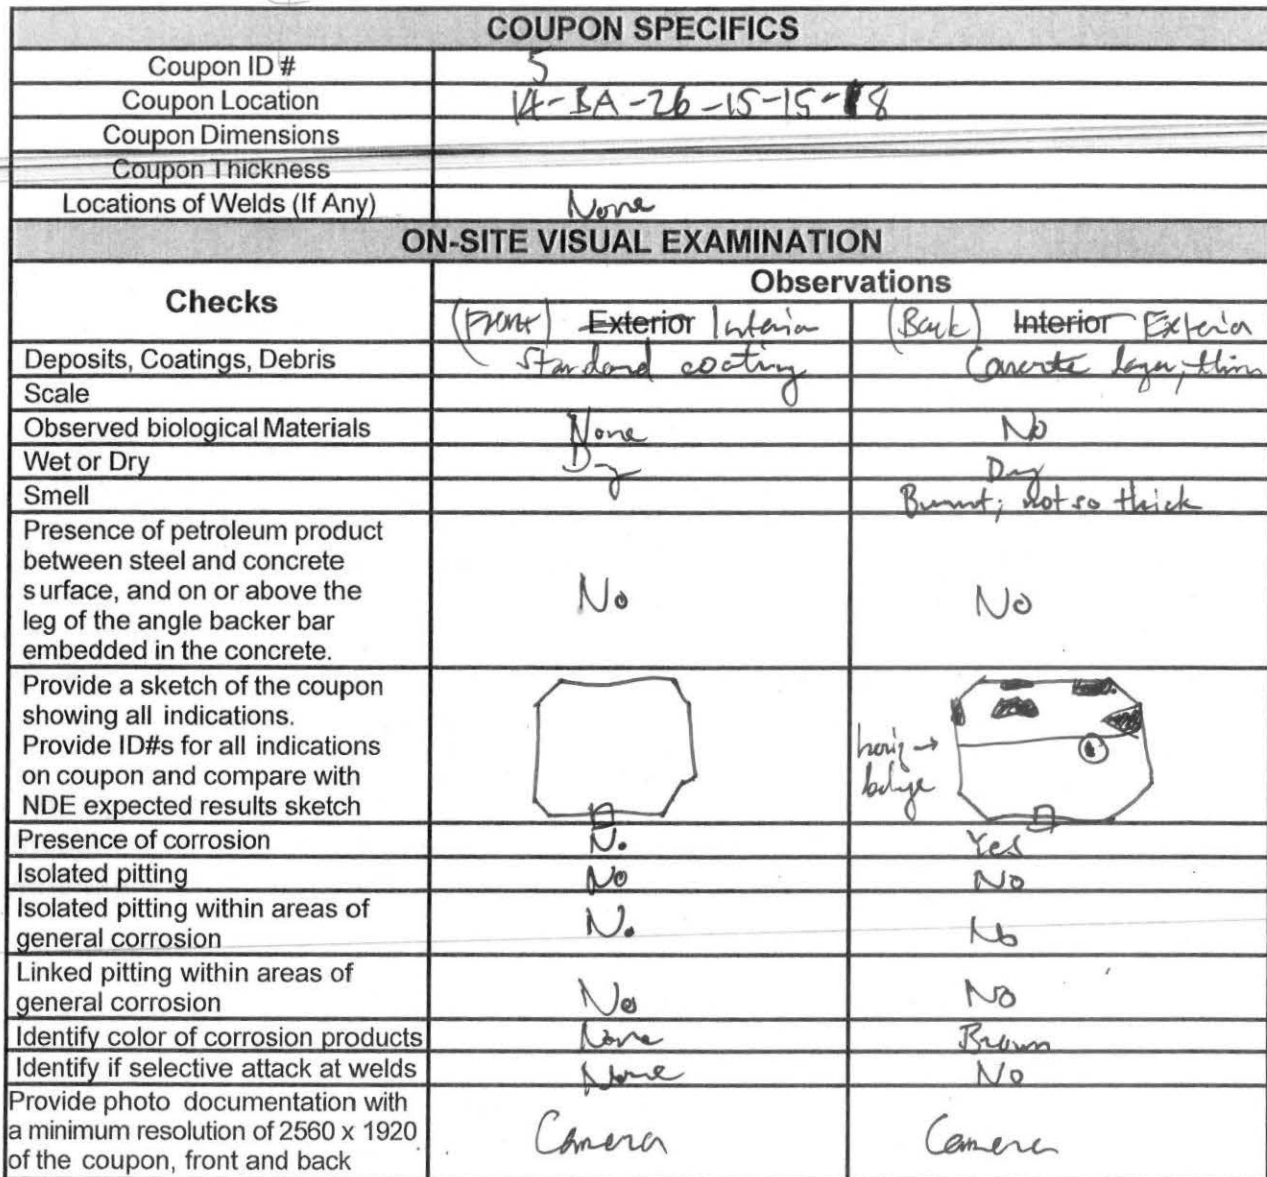 COUPON SPECIFICS
Coupon ID # 5
Coupon Location 14-BA-26-15-15-18
Coupon Dimensions
Coupon Thickness
Locations of Welds (If Any) None
ON-SITE VISUAL EXAMINATION
Checks Observations
(Front) Exterior Interior (Back) Interior Exterior
Deposits, Coatings, Debris Standard coating Concrete layer, thin
Scale
Observed biological Materials None No
Wet or Dry Dry Dry
Smell Burnt; not so thick
Presence of petroleum product
between steel and concrete
surface, and on or above the
leg of the angle backer bar
embedded in the concrete. No No
Provide a sketch of the coupon
showing all indications.
Provide ID#s for all indications
on coupon and compare with
NDE expected results sketch
horiz →
bulge
Presence of corrosion No Yes
Isolated pitting No No
Isolated pitting within areas of
general corrosion No No
Linked pitting within areas of
general corrosion No No
Identify color of corrosion products None Brown
Identify if selective attack at welds None No
Provide photo documentation with
a minimum resolution of 2560 x 1920
of the coupon, front and back Camera Camera